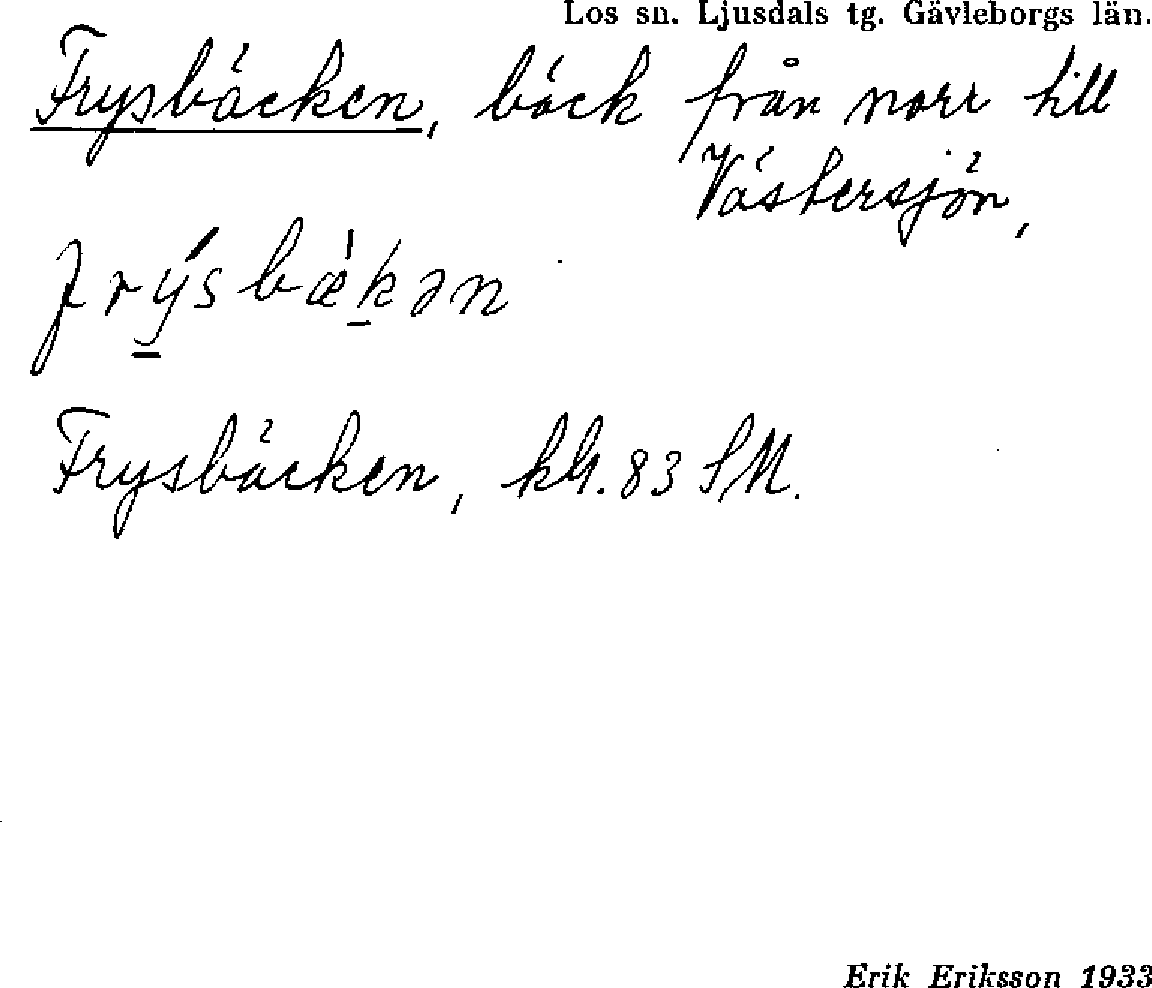 Los sn. Ljusdals tg. Gävleborgs län.
Frysbäcken, bäck från norr till
Västersjön,
frýsbæ̀kən
Frysbäcken, kbl. 83 SM.
Erik Eriksson 1933